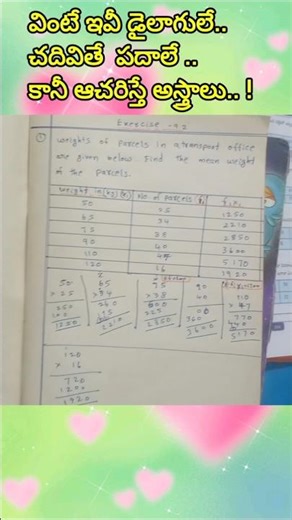 వింటే ఇవీ డైలాగులే..
చదివితే పదాలే ..
కానీ ఆచరిస్తే అస్త్రాలు.. !
Exercise - 9.2
① Weights of parcels in a transport office
are given below. Find the mean weight
of the parcels.
Weight in (kg) (xi) No. of parcels fi fi xi
50 25 1250
65 34 2210
75 38 2850
90 40 3600
110 47 5170
120 16 1920
50 65 75 90 110
× 25 × 34 × 38 40 × 47
250 260 600 00 770
100 195 225 360 440
1250 2210 2850 3600 5170
120
× 16
720
1200
1920